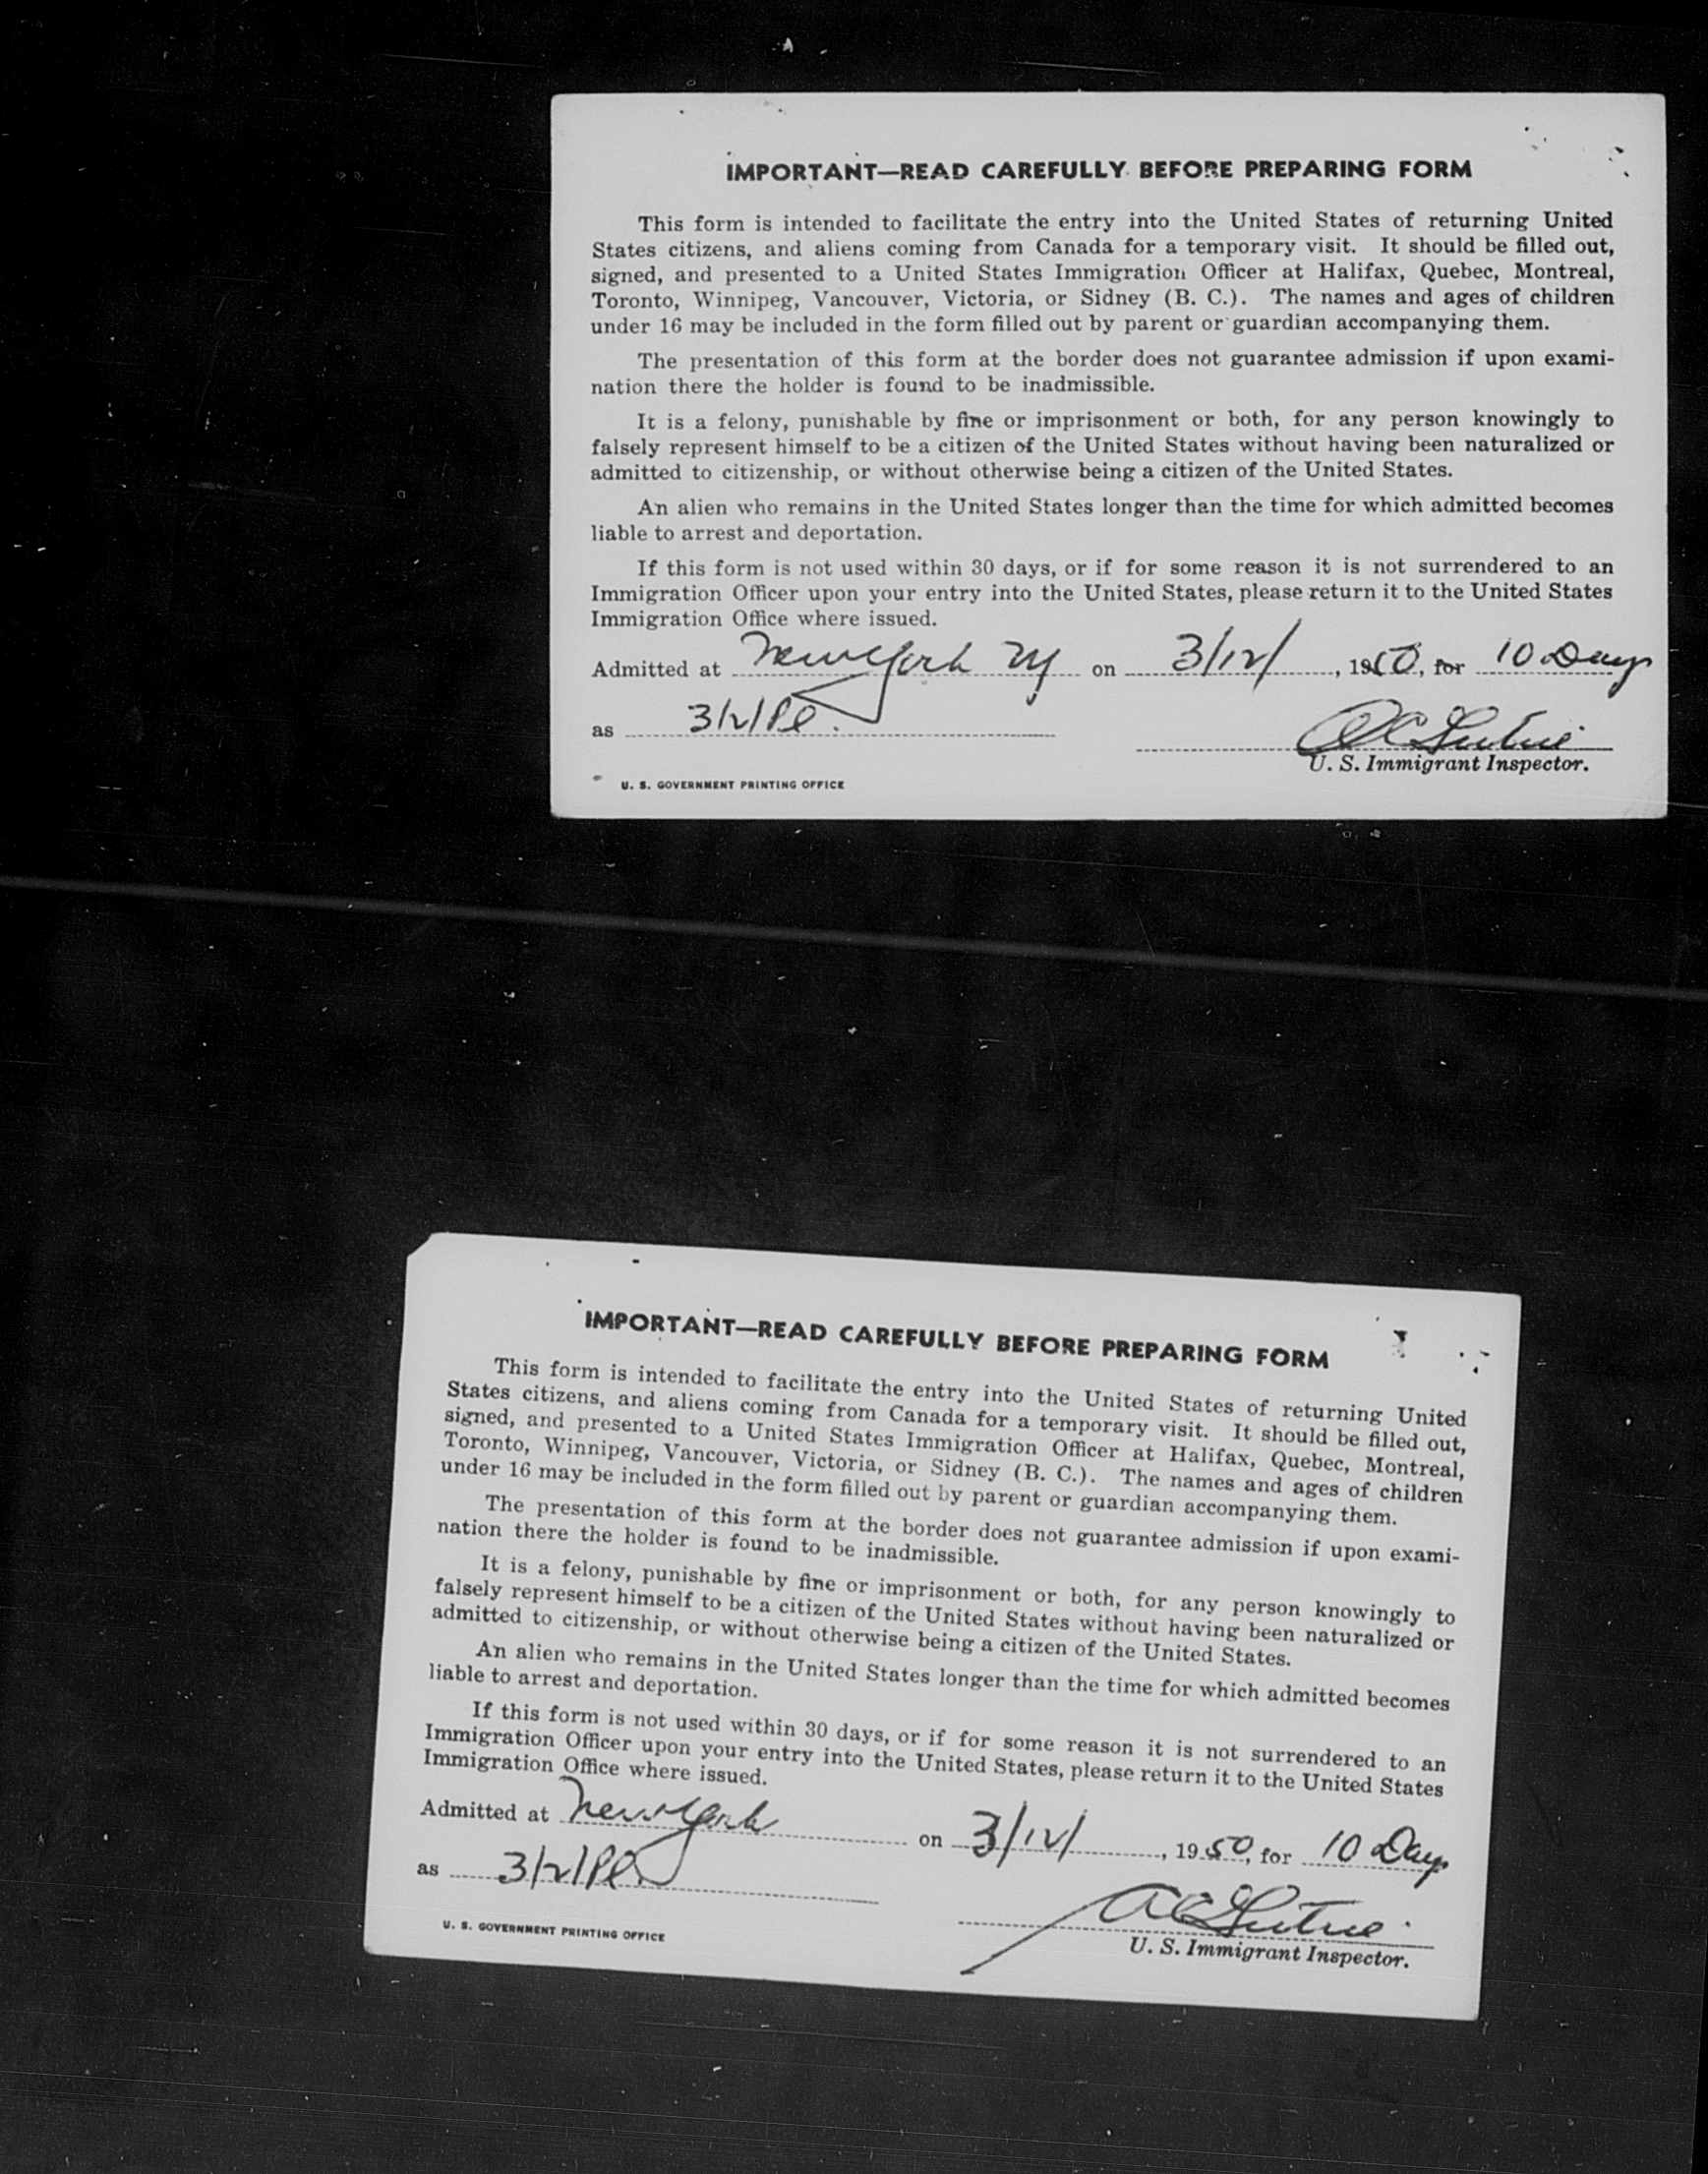 IMPORTANT—READ CAREFULLY BEFORE PREPARING FORM
This form is intended to facilitate the entry into the United States of returning United
States citizens, and aliens coming from Canada for a temporary visit. It should be filled out,
signed, and presented to a United States Immigration Officer at Halifax, Quebec, Montreal,
Toronto, Winnipeg, Vancouver, Victoria, or Sidney (B. C.). The names and ages of children
under 16 may be included in the form filled out by parent or guardian accompanying them.
The presentation of this form at the border does not guarantee admission if upon exami-
nation there the holder is found to be inadmissible.
It is a felony, punishable by fine or imprisonment or both, for any person knowingly to
falsely represent himself to be a citizen of the United States without having been naturalized or
admitted to citizenship, or without otherwise being a citizen of the United States.
An alien who remains in the United States longer than the time for which admitted becomes
liable to arrest and deportation.
If this form is not used within 30 days, or if for some reason it is not surrendered to an
Immigration Officer upon your entry into the United States, please return it to the United States
Immigration Office where issued.
Admitted at New York NY on 3/12/, 1950, for 10 Days
as 3/2/
U. S. Immigrant Inspector.
U. S. GOVERNMENT PRINTING OFFICE
IMPORTANT—READ CAREFULLY BEFORE PREPARING FORM
This form is intended to facilitate the entry into the United States of returning United
States citizens, and aliens coming from Canada for a temporary visit. It should be filled out,
signed, and presented to a United States Immigration Officer at Halifax, Quebec, Montreal,
Toronto, Winnipeg, Vancouver, Victoria, or Sidney (B. C.). The names and ages of children
under 16 may be included in the form filled out by parent or guardian accompanying them.
The presentation of this form at the border does not guarantee admission if upon exami-
nation there the holder is found to be inadmissible.
It is a felony, punishable by fine or imprisonment or both, for any person knowingly to
falsely represent himself to be a citizen of the United States without having been naturalized or
admitted to citizenship, or without otherwise being a citizen of the United States.
An alien who remains in the United States longer than the time for which admitted becomes
liable to arrest and deportation.
If this form is not used within 30 days, or if for some reason it is not surrendered to an
Immigration Officer upon your entry into the United States, please return it to the United States
Immigration Office where issued.
Admitted at New York on 3/12/, 1950, for 10 Days
as 3/2/
U. S. Immigrant Inspector.
U. S. GOVERNMENT PRINTING OFFICE